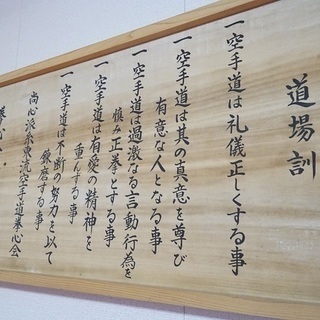 道場訓
一 空手道は礼儀正しくする事
一 空手道は其の真意を尊び
有意な人となる事
一 空手道は過激なる言動行為を
慎み正拳とする事
一 空手道は有愛の精神を
重んずる事
一 空手道は不断の努力を以て
錬磨する事
尚心派糸東流空手道拳心会